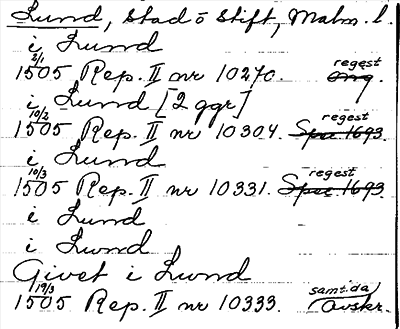 Lund, stad o stift, Malm. l.
i Lund
2/1 1505 Rep. II nr 10270. regest orig.
i Lund [2 ggr]
10/2 1505 Rep. II nr 10304. regest Spec 1693.
i Lund
10/3 1505 Rep. II nr 10331. regest Spec 1693.
i Lund
i Lund
Givet i Lund
19/3 1505 Rep. II nr 10333. samtida Avskr.